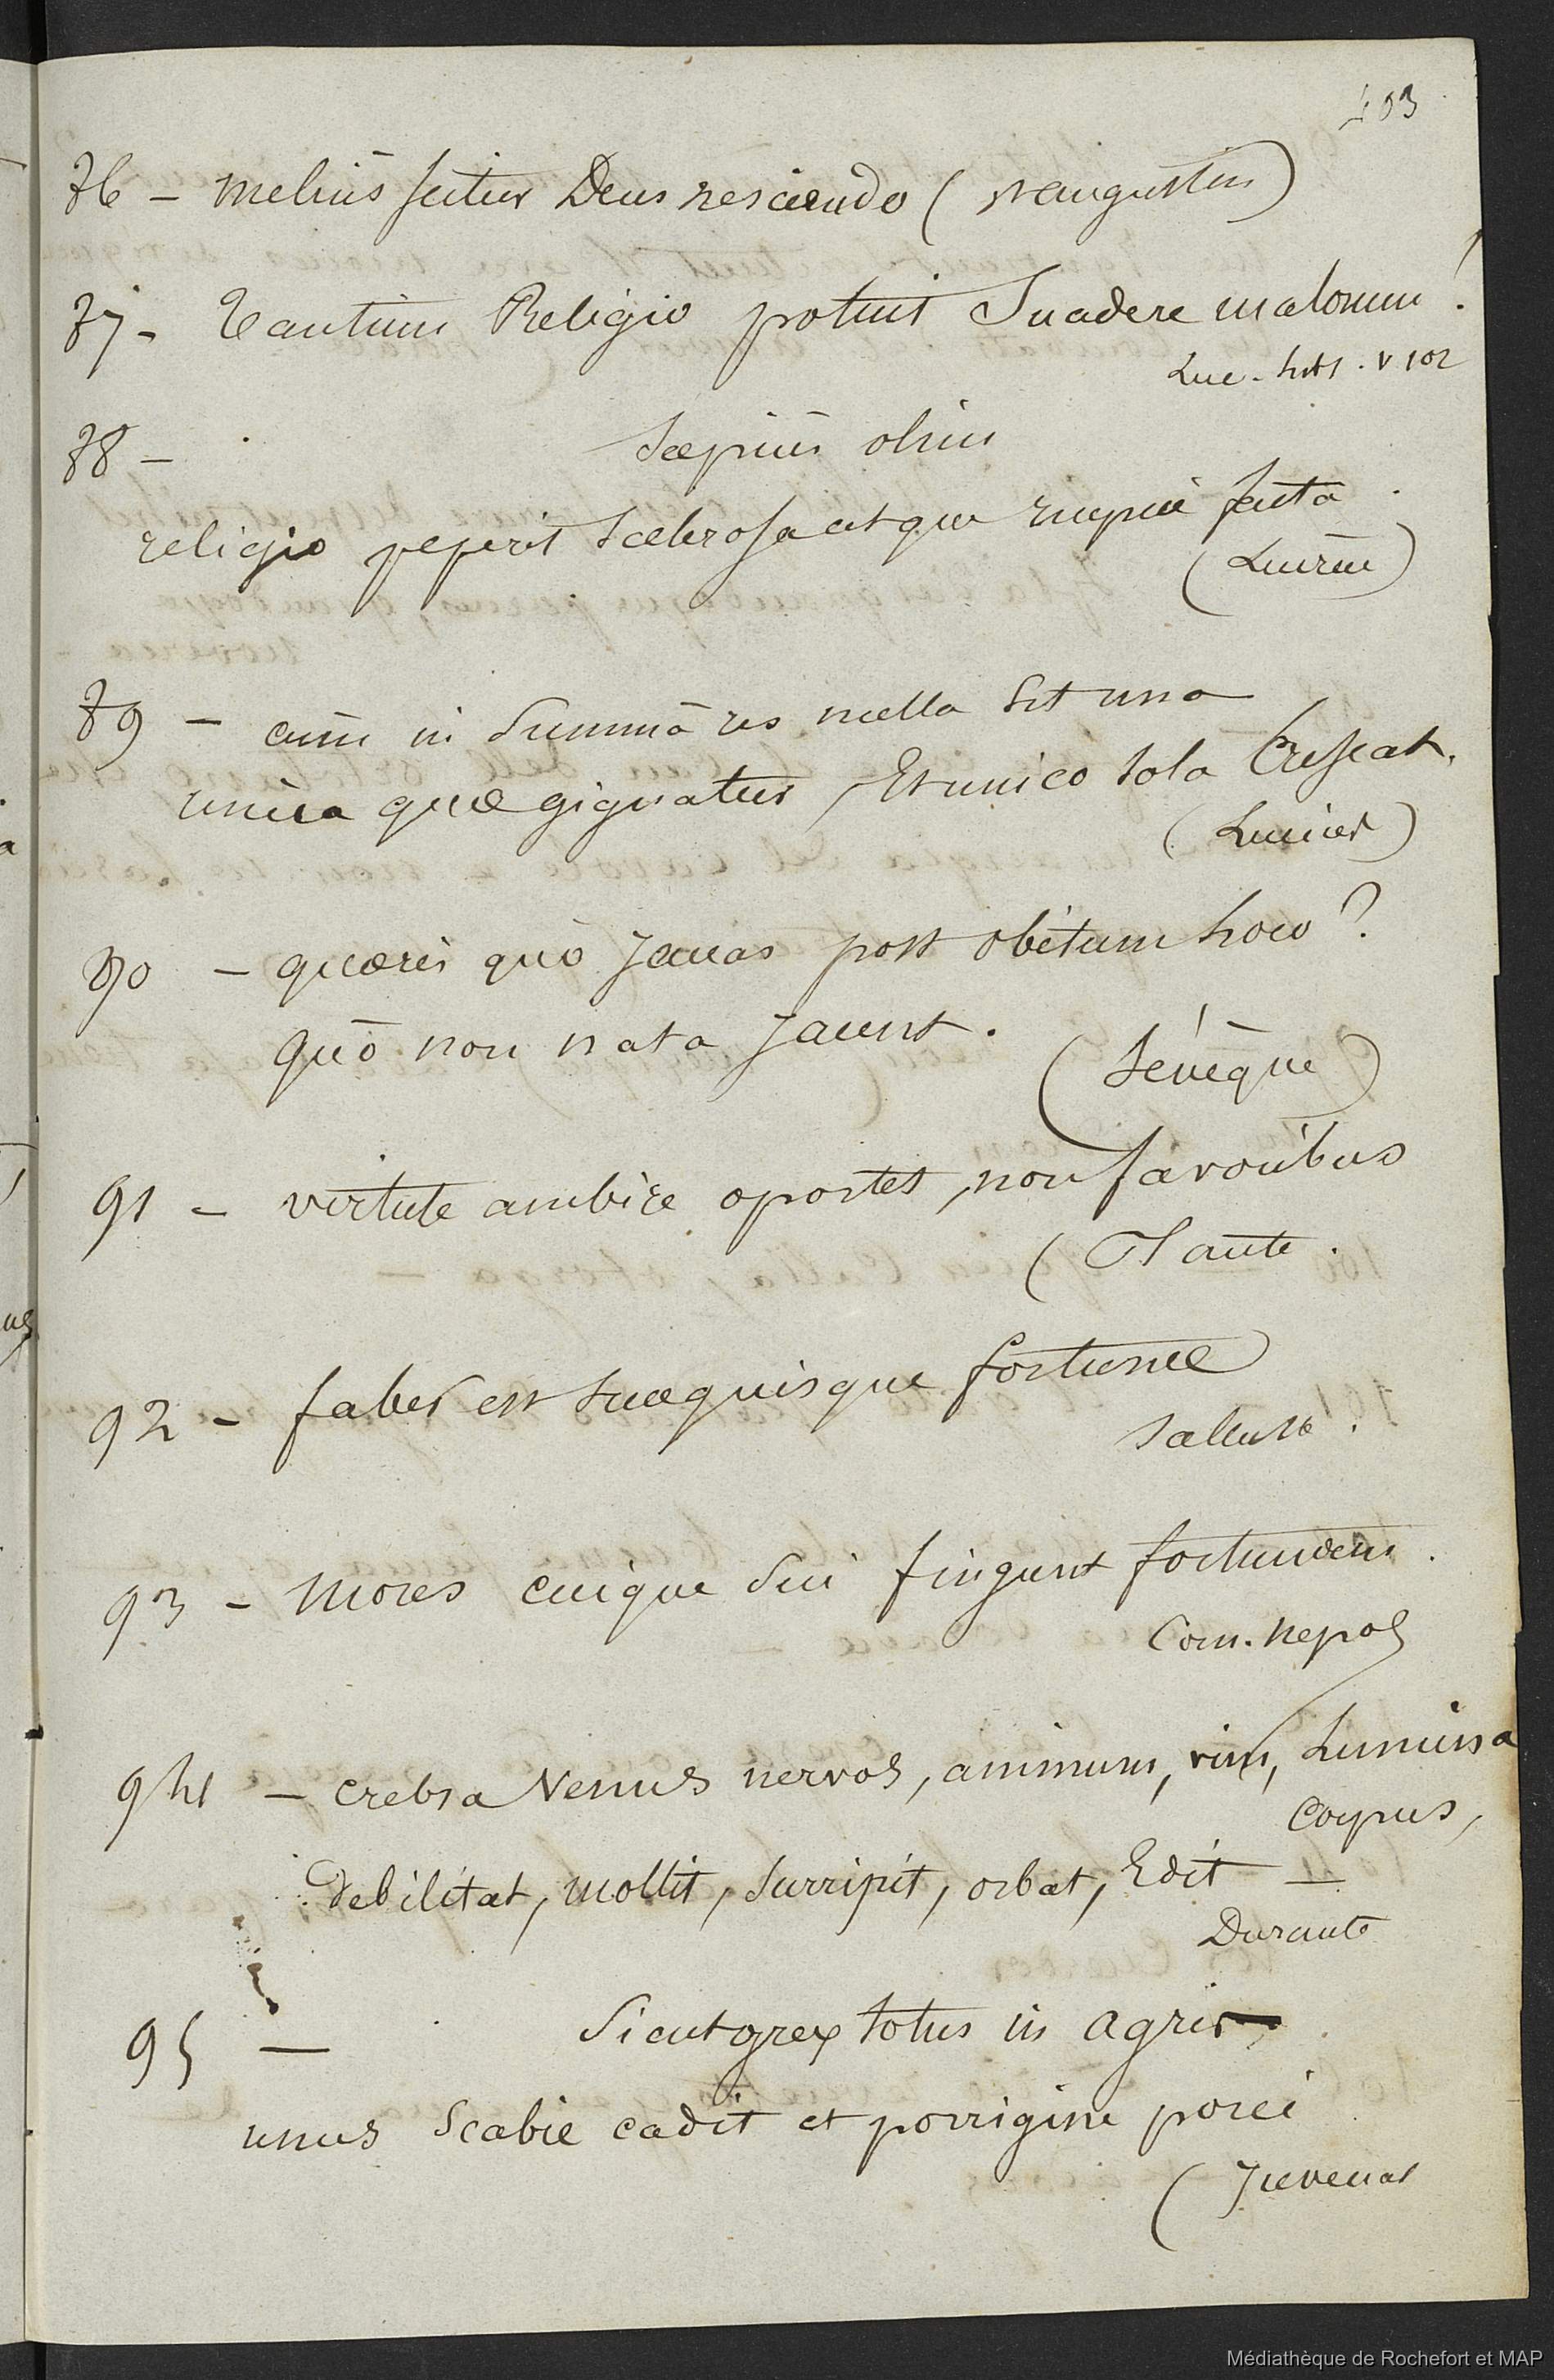 403
86 – meliùs scitur Deus nesciendo (St augustin)
87 – Tantùm Religio potuit Suadere malorum !
Luc. liv 1. v 102
88 – Sæpiùs olim
religio peperit scelerosa atque impia facta.
(Lucrèce)
89 – cùm in Summâ res nulla sit una
unica quæ gignatur, Et unica sola Crescat.
(Lucrèce)
90 – quæris quò Jaceas post obitum loco ?
quò non nata Jacent.
(Sénèque)
91 – virtute ambire oportet, non favoribus
(Plaute.
92 – faber est suæ quisque fortunæ
Salluste.
93 – Mores cuique Sui fingunt fortunam.
Corn. Nepos
94 – crebra Venus nervos, animum, vim, Lumina
corpus,
Debilitat, mollit, Surripit, orbat, Edit –
Durante
95 – Sicut grex totus in agris
unus Scabie cadit et porrigine porci
(Juvenal
Médiathèque de Rochefort et MAP